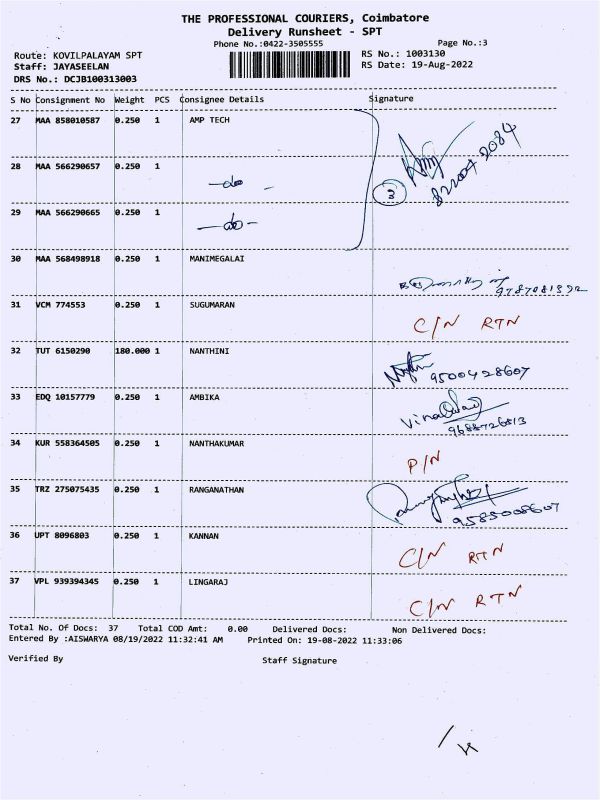 THE PROFESSIONAL COURIERS, Coimbatore
Delivery Runsheet - SPT
Phone No.:0422-3505555 Page No.:3
Route: KOVILPALAYAM SPT RS No.: 1003130
Staff: JAYASEELAN RS Date: 19-Aug-2022
DRS No.: DCJB100313003
S No Consignment No Weight PCS Consignee Details Signature
27 MAA 858010587 0.250 1 AMP TECH
28 MAA 566290657 0.250 1 -do-
29 MAA 566290665 0.250 1 -do-
3
30 MAA 568498918 0.250 1 MANIMEGALAI
9787081392
31 VCM 774553 0.250 1 SUGUMARAN C/N RTN
32 TUT 6150290 180.000 1 NANTHINI 9500428607
33 EDQ 10157779 0.250 1 AMBIKA
9688726813
34 KUR 558364505 0.250 1 NANTHAKUMAR P/N
35 TRZ 275075435 0.250 1 RANGANATHAN
9585008607
36 UPT 8096803 0.250 1 KANNAN C/N RTN
37 VPL 939394345 0.250 1 LINGARAJ C/N RTN
Total No. Of Docs: 37 Total COD Amt: 0.00 Delivered Docs: Non Delivered Docs:
Entered By :AISWARYA 08/19/2022 11:32:41 AM Printed On: 19-08-2022 11:33:06
Verified By Staff Signature